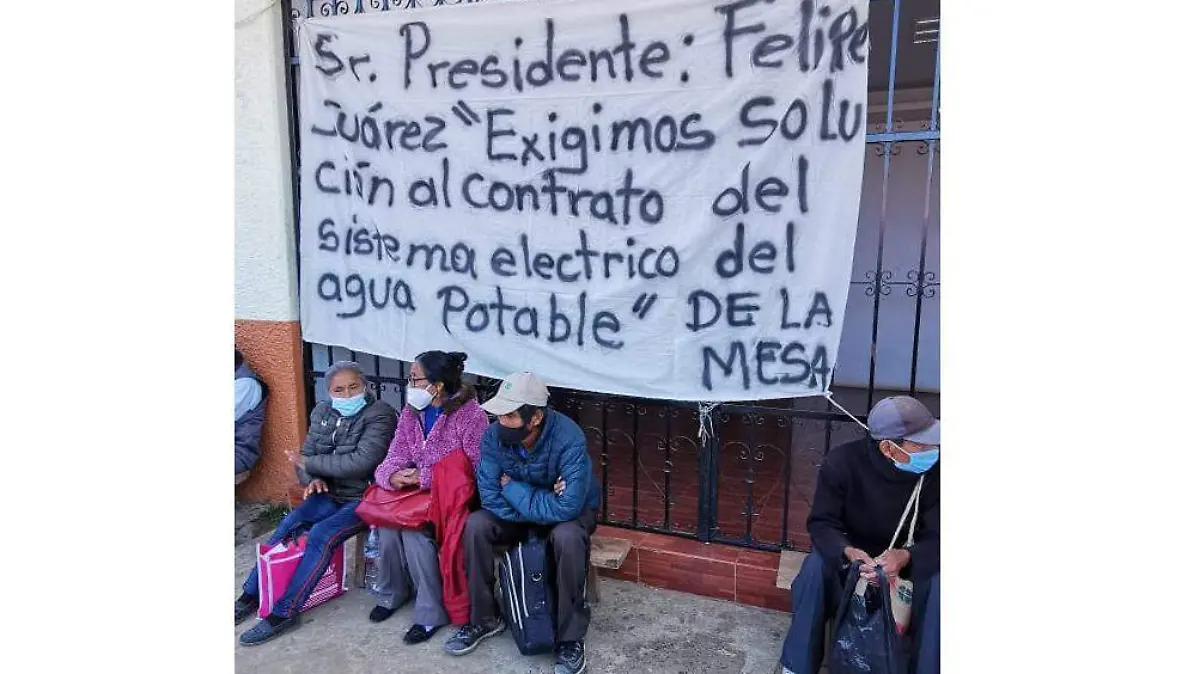 Sr. Presidente: Felipe
Juárez "Exigimos SOLU
ción al contrato del
sistema electrico del
agua Potable" DE LA
MESA